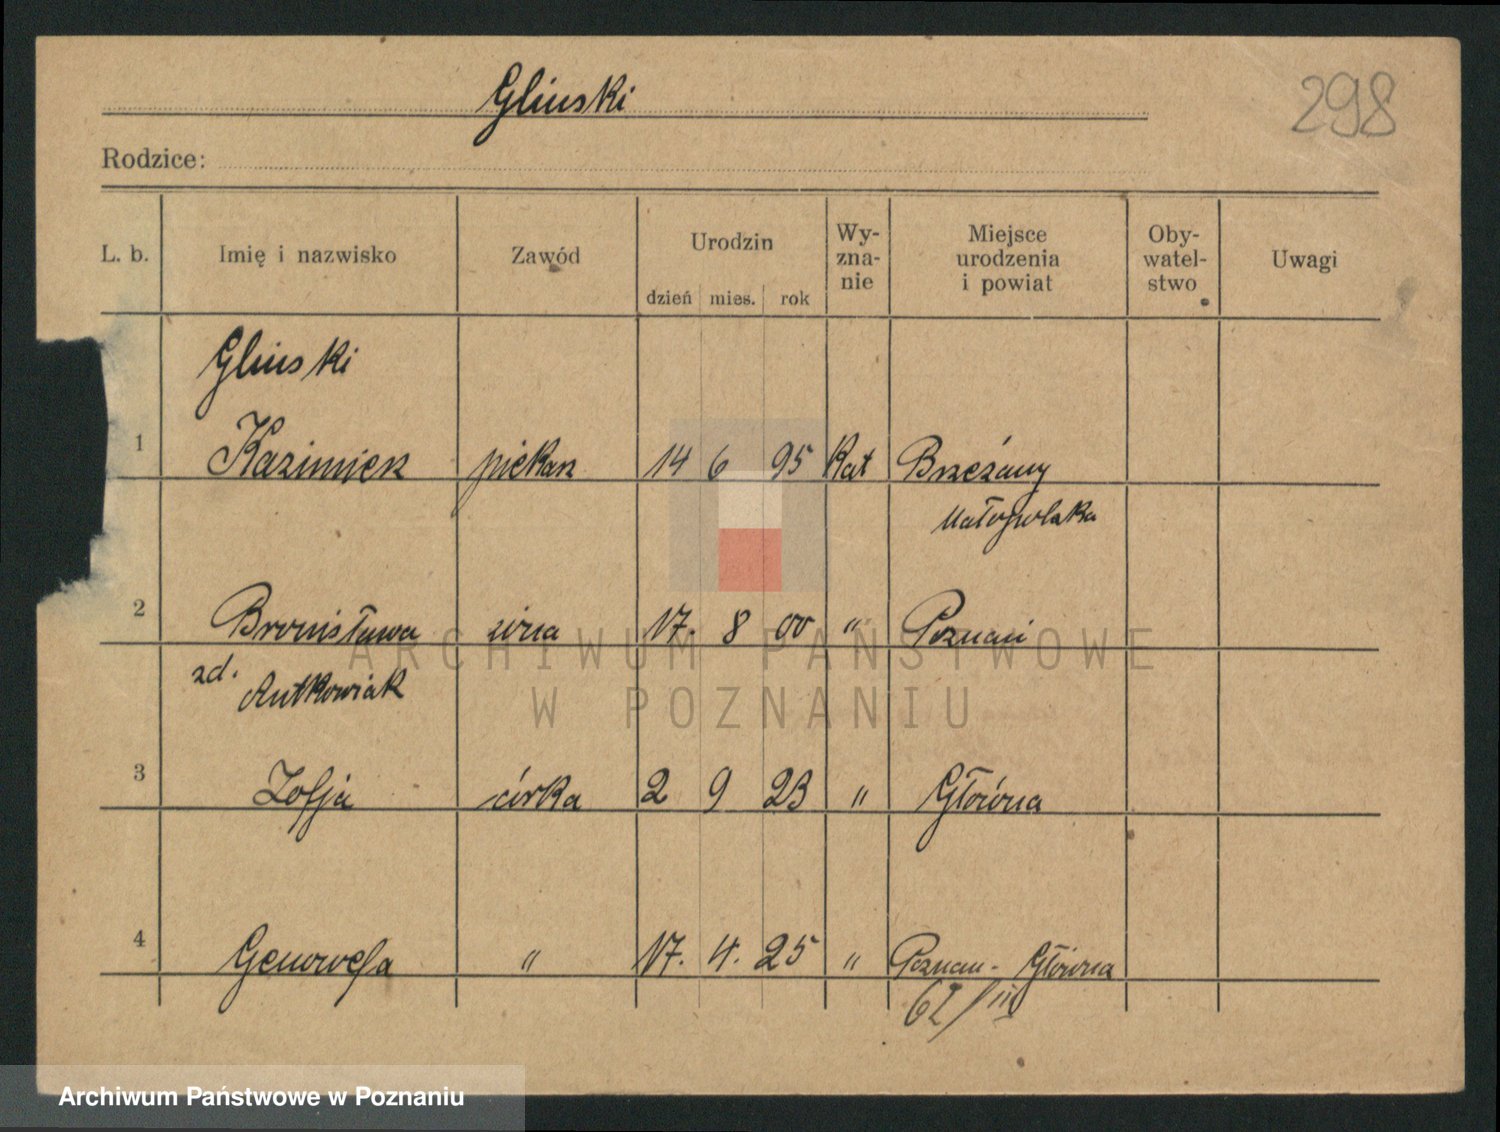 Gliński
298
Rodzice:
L. b. Imię i nazwisko Zawód Urodzin dzień mies. rok Wy-zna-nie Miejsce urodzenia i powiat Oby-watel-stwo Uwagi
Gliński
1 Kazimierz piekarz 14 6 95 Kat Brzeżany
Małopolska
2 Bronisława żona 17. 8 00 " Poznań
zd. Antkowiak
3 Zofja córka 2 9 23 " Główna
4 Genowefa " 17. 4. 25 " Poznań - Główna
62/III
ARCHIWUM PAŃSTWOWE
W POZNANIU
Archiwum Państwowe w Poznaniu